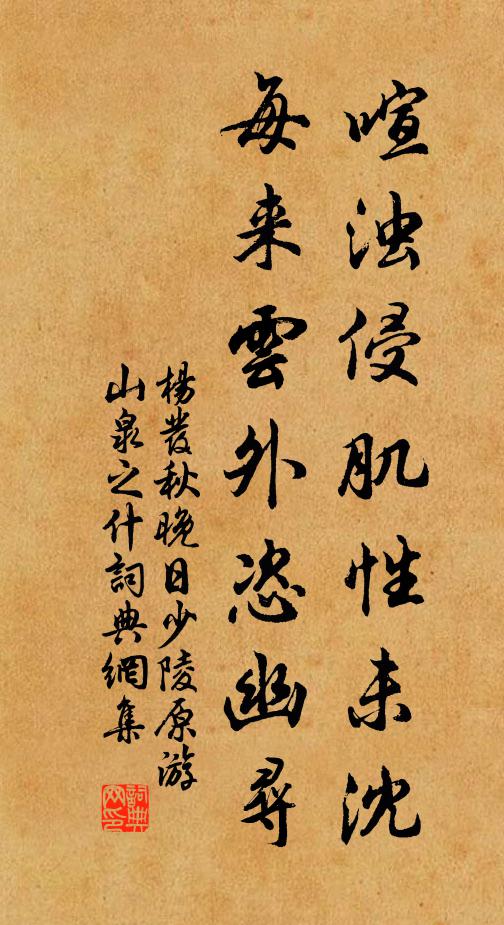 喧浊侵肌性未沈
每来雲外恣幽尋
楊發秋晚日少陵原游
山泉之什詞典網集
詞典
网印